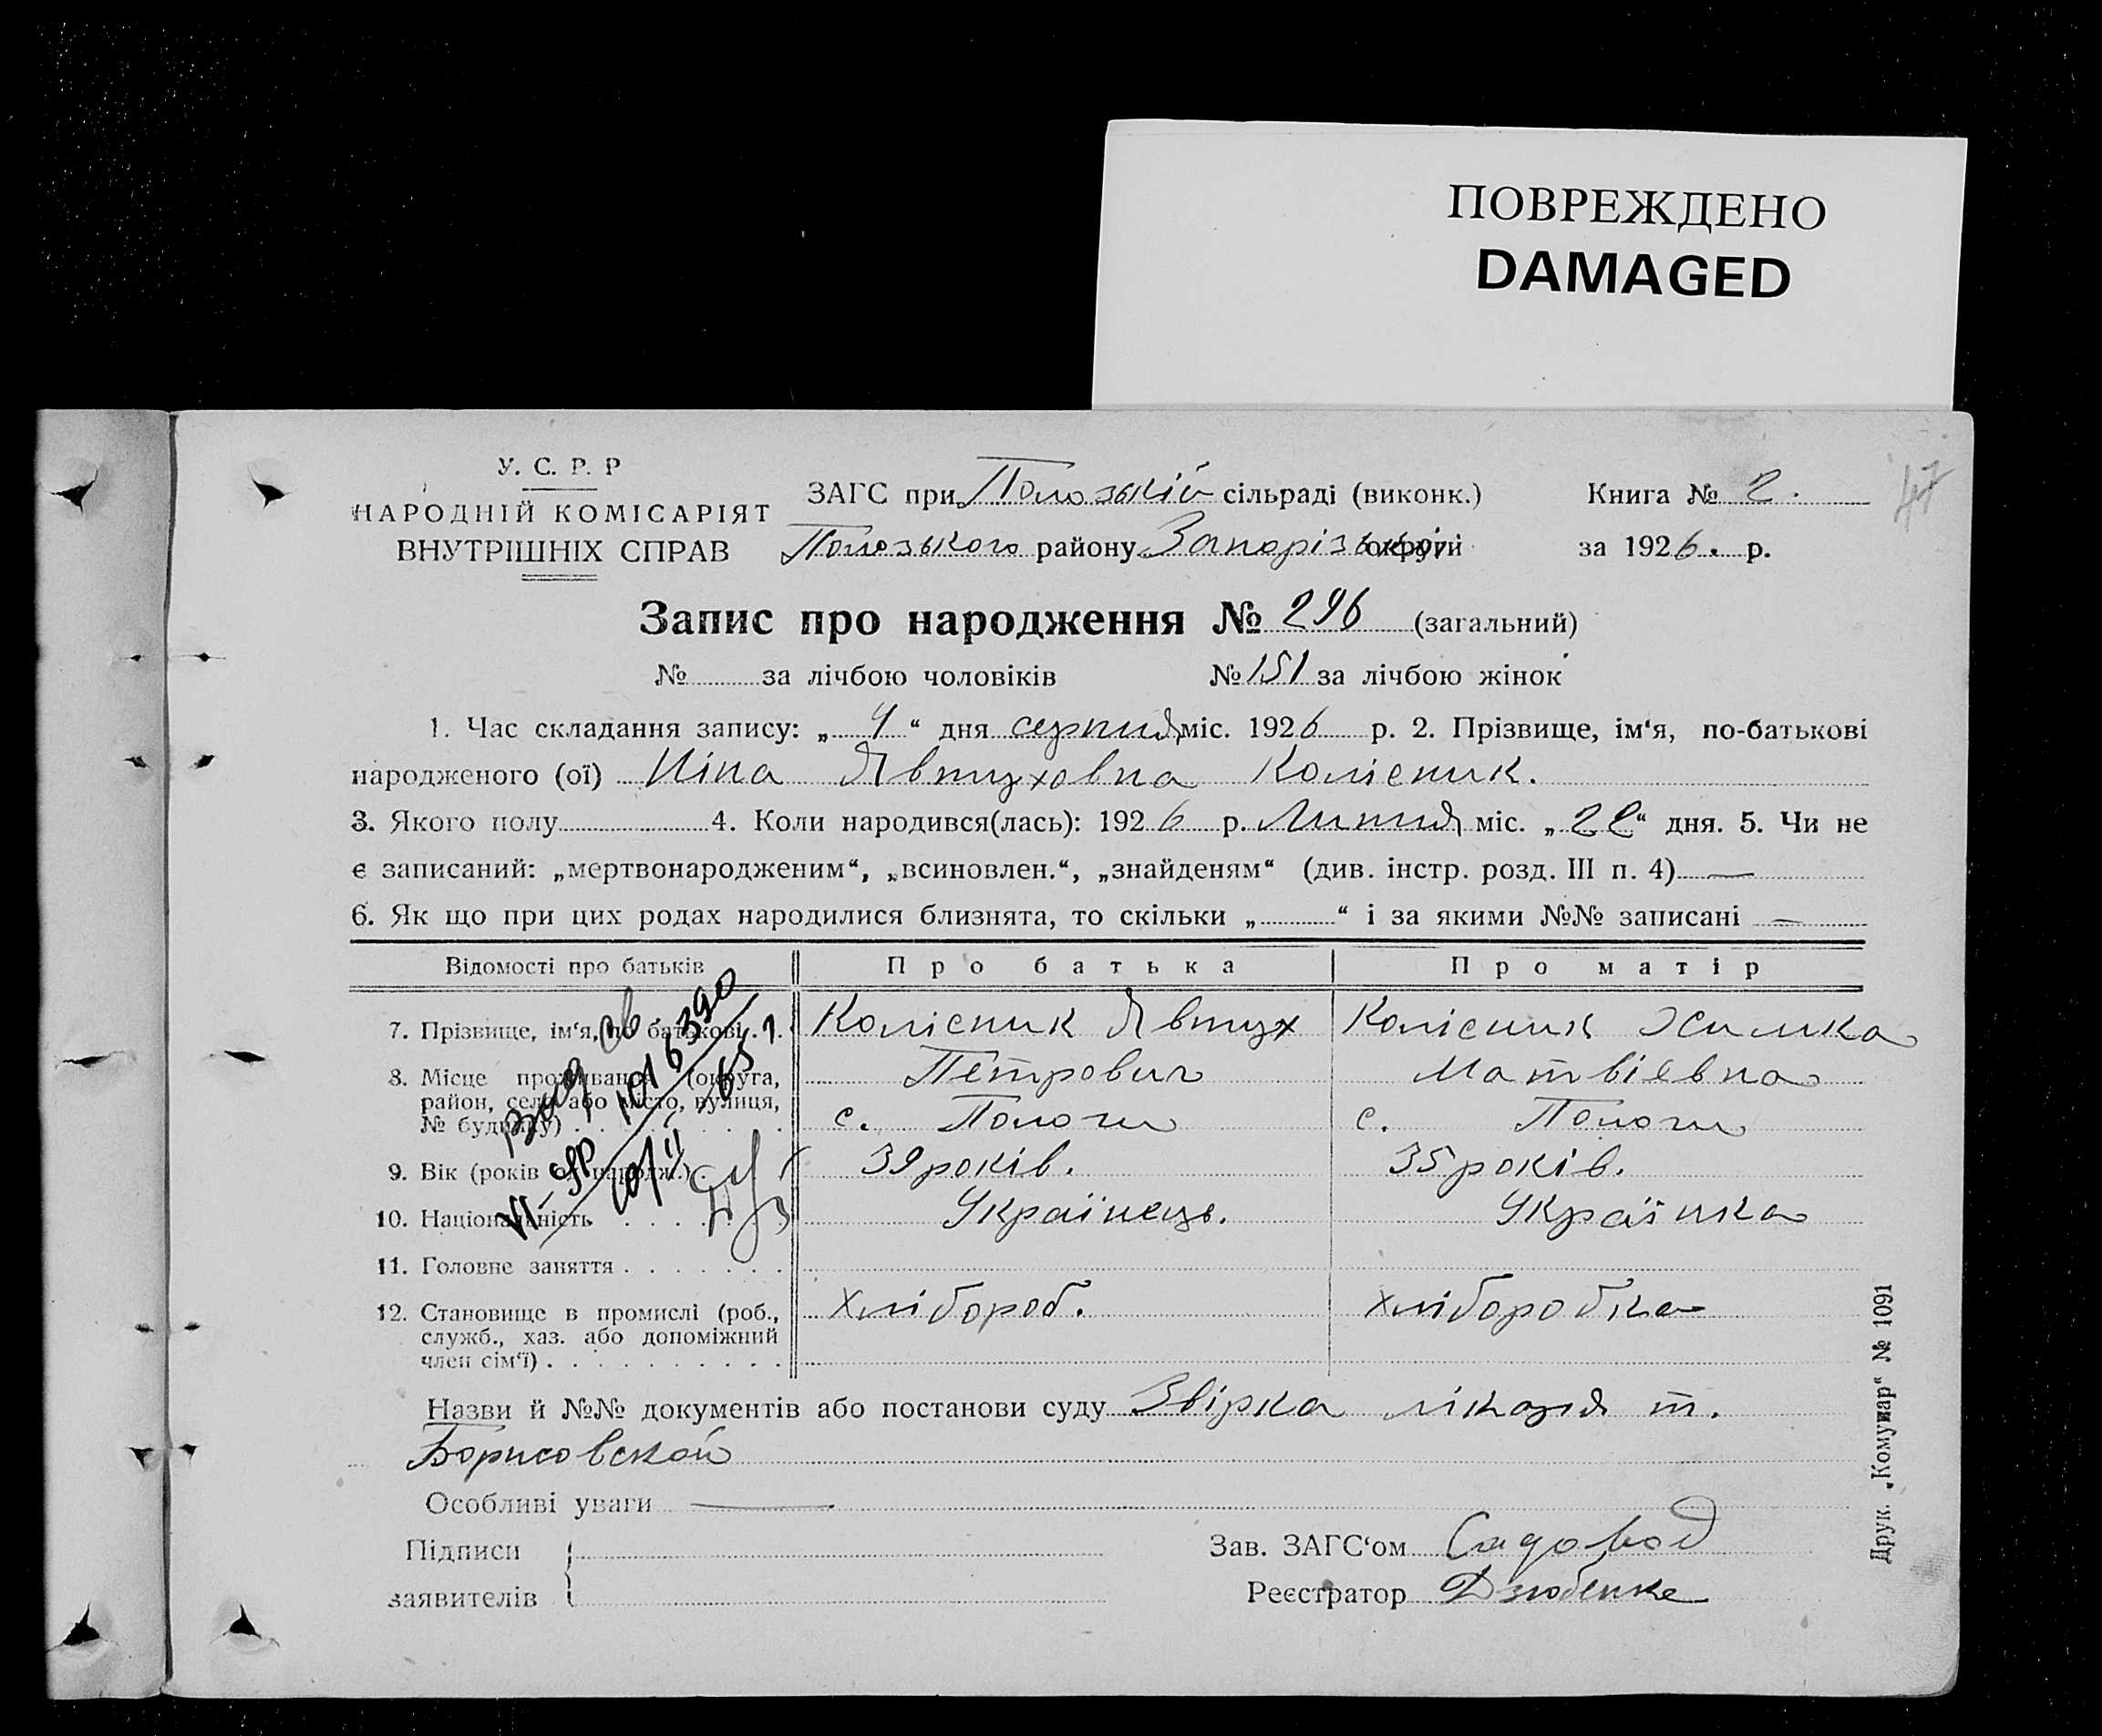 ПОВРЕЖДЕНО
DAMAGED
47
У. С. Р. Р
НАРОДНІЙ КОМІСАРІЯТ
ВНУТРІШНІХ СПРАВ
ЗАГС при Пологзькій сільраді (виконк.)
Пологзького району Запорізької округи
Книга № 2.
за 1926. р.
Запис про народження № 296 (загальний)
№ за лічбою чоловіків № 151 за лічбою жінок
1. Час складання запису: „ 4 “ дня серпня міс. 1926 р. 2. Прізвище, ім‘я, по-батькові
народженого (ої) Ніна Явтуховна Колісник.
3. Якого полу 4. Коли народився(лась): 1926 р. Липня міс. „ 22 “ дня. 5. Чи не
є записаний: „мертвонародженим“, „всиновлен.“, „знайденям“ (див. інстр. розд. III п. 4) —
6. Як що при цих родах народилися близнята, то скільки „ “ і за якими №№ записані —
Відомості про батьків Про батька Про матір
7. Прізвище, ім‘я, по батькові . . Колісник Явтух Колісник Химка
8. Місце проживання (округа, Петрович Матвіевна
район, село або місто, вулиця,
№ будинку) с. Пологи с. Пологи
9. Вік (років від народж.) 39 років. 35 років.
10. Національність Українець. Українка
11. Головне заняття
12. Становище в промислі (роб., Хлібороб. хліборобка
служб., хаз. або допоміжний
член сім‘ї)
Назви й №№ документів або постанови суду Звірка лікаря т.
Борисовской
Особливі уваги —
Підписи
заявителів
Зав. ЗАГС‘ом Садовод
Реєстратор Дзюбенко
Друк. „Комунар“ № 1091